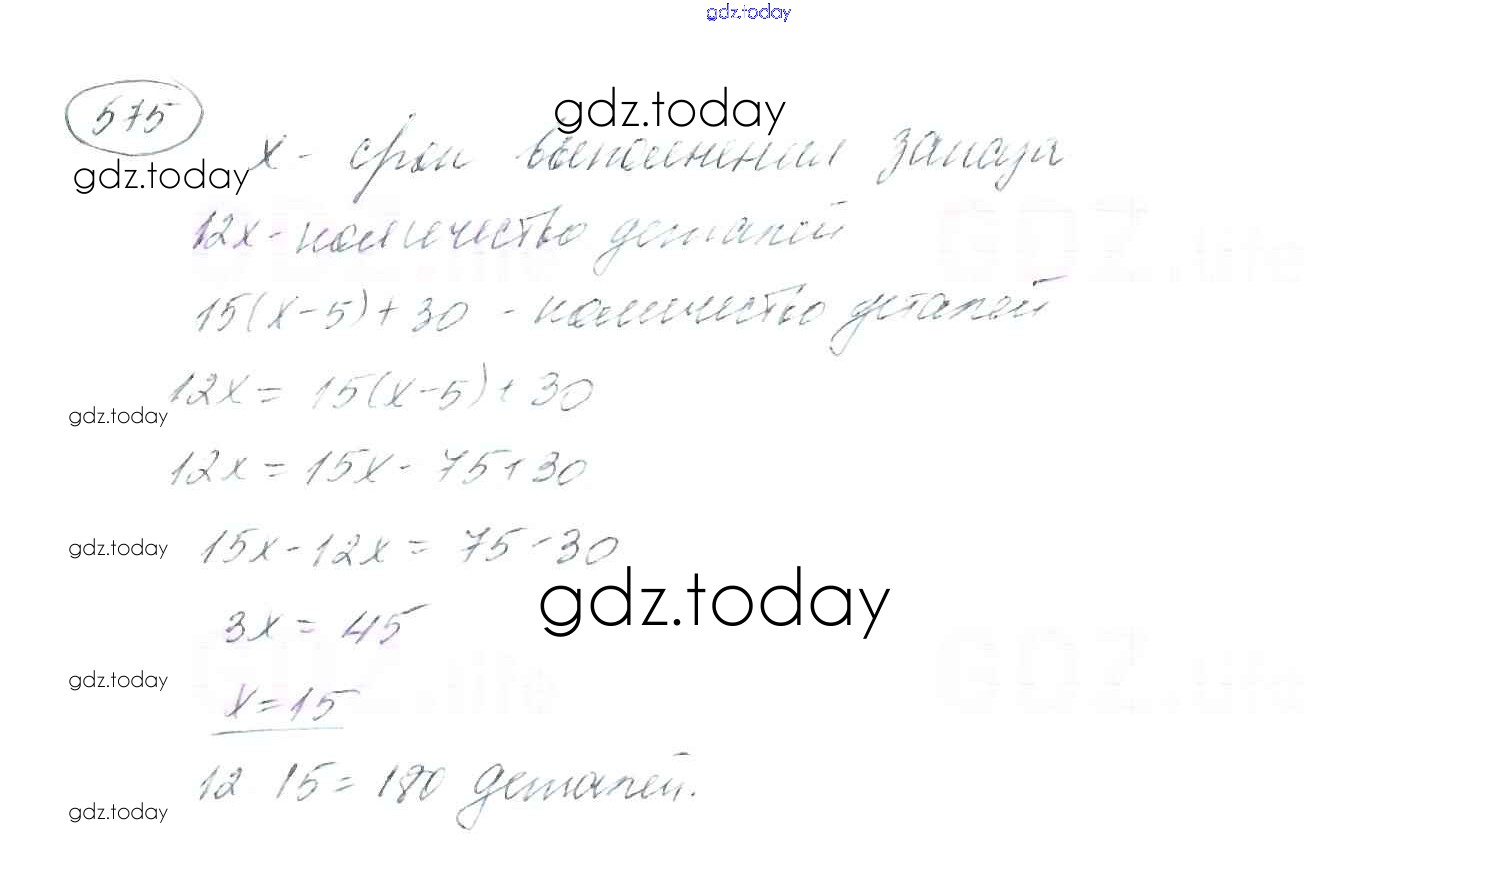 gdz.today
575
gdz.today
x - срок выполнения заказа
gdz.today
12x - количество деталей
15(x-5)+30 - количество деталей
12x = 15(x-5)+30
gdz.today
12x = 15x - 75+30
15x-12x = 75-30
gdz.today
gdz.today
3x = 45
gdz.today
x=15
12 15 = 180 деталей.
gdz.today
GDZ.life
GDZ.life
GDZ.life
GDZ.life